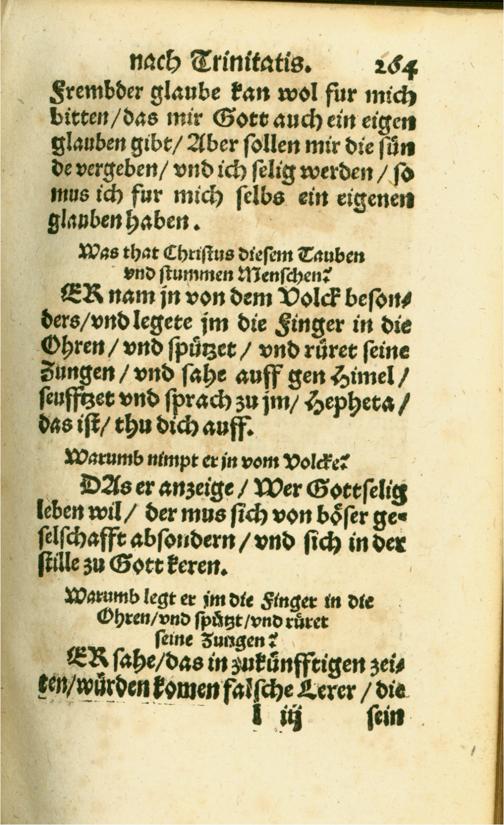 nach Trinitatis. 264
Frembder glaube kan wol fur mich
bitten/das mir Gott auch ein eigen
glauben gibt/ Aber sollen mir die sün
de vergeben/ vnd ich selig werden/ so
mus ich fur mich selbs ein eigenen
glauben haben.
Was that Christus diesem Tauben
vnd stummen Menschen?
ER nam jn von dem Volck beson⸗
ders/vnd legete jm die Finger in die
Ohren/ vnd spützet/ vnd rüret seine
Zungen/ vnd sahe auff gen Himel/
seufftzet vnd sprach zu jm/ Hepheta/
das ist/ thu dich auff.
Warumb nimpt er jn vom Volcke?
DAs er anzeige/ Wer Gottselig
leben wil/ der mus sich von böser ge⸗
selschafft absondern/ vnd sich in der
stille zu Gott keren.
Warumb legt er jm die Finger in die
Ohren/vnd spützt/vnd rüret
seine Zungen?
ER sahe/das in zukünfftigen zei⸗
ten/würden komen falsche Lerer/ die
l iij sein